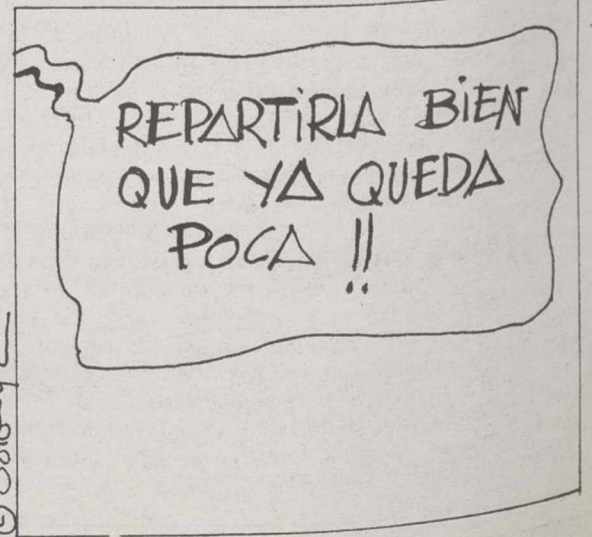 REPARTiRLA BiEN
QUE YA QUEDA
POCA !!